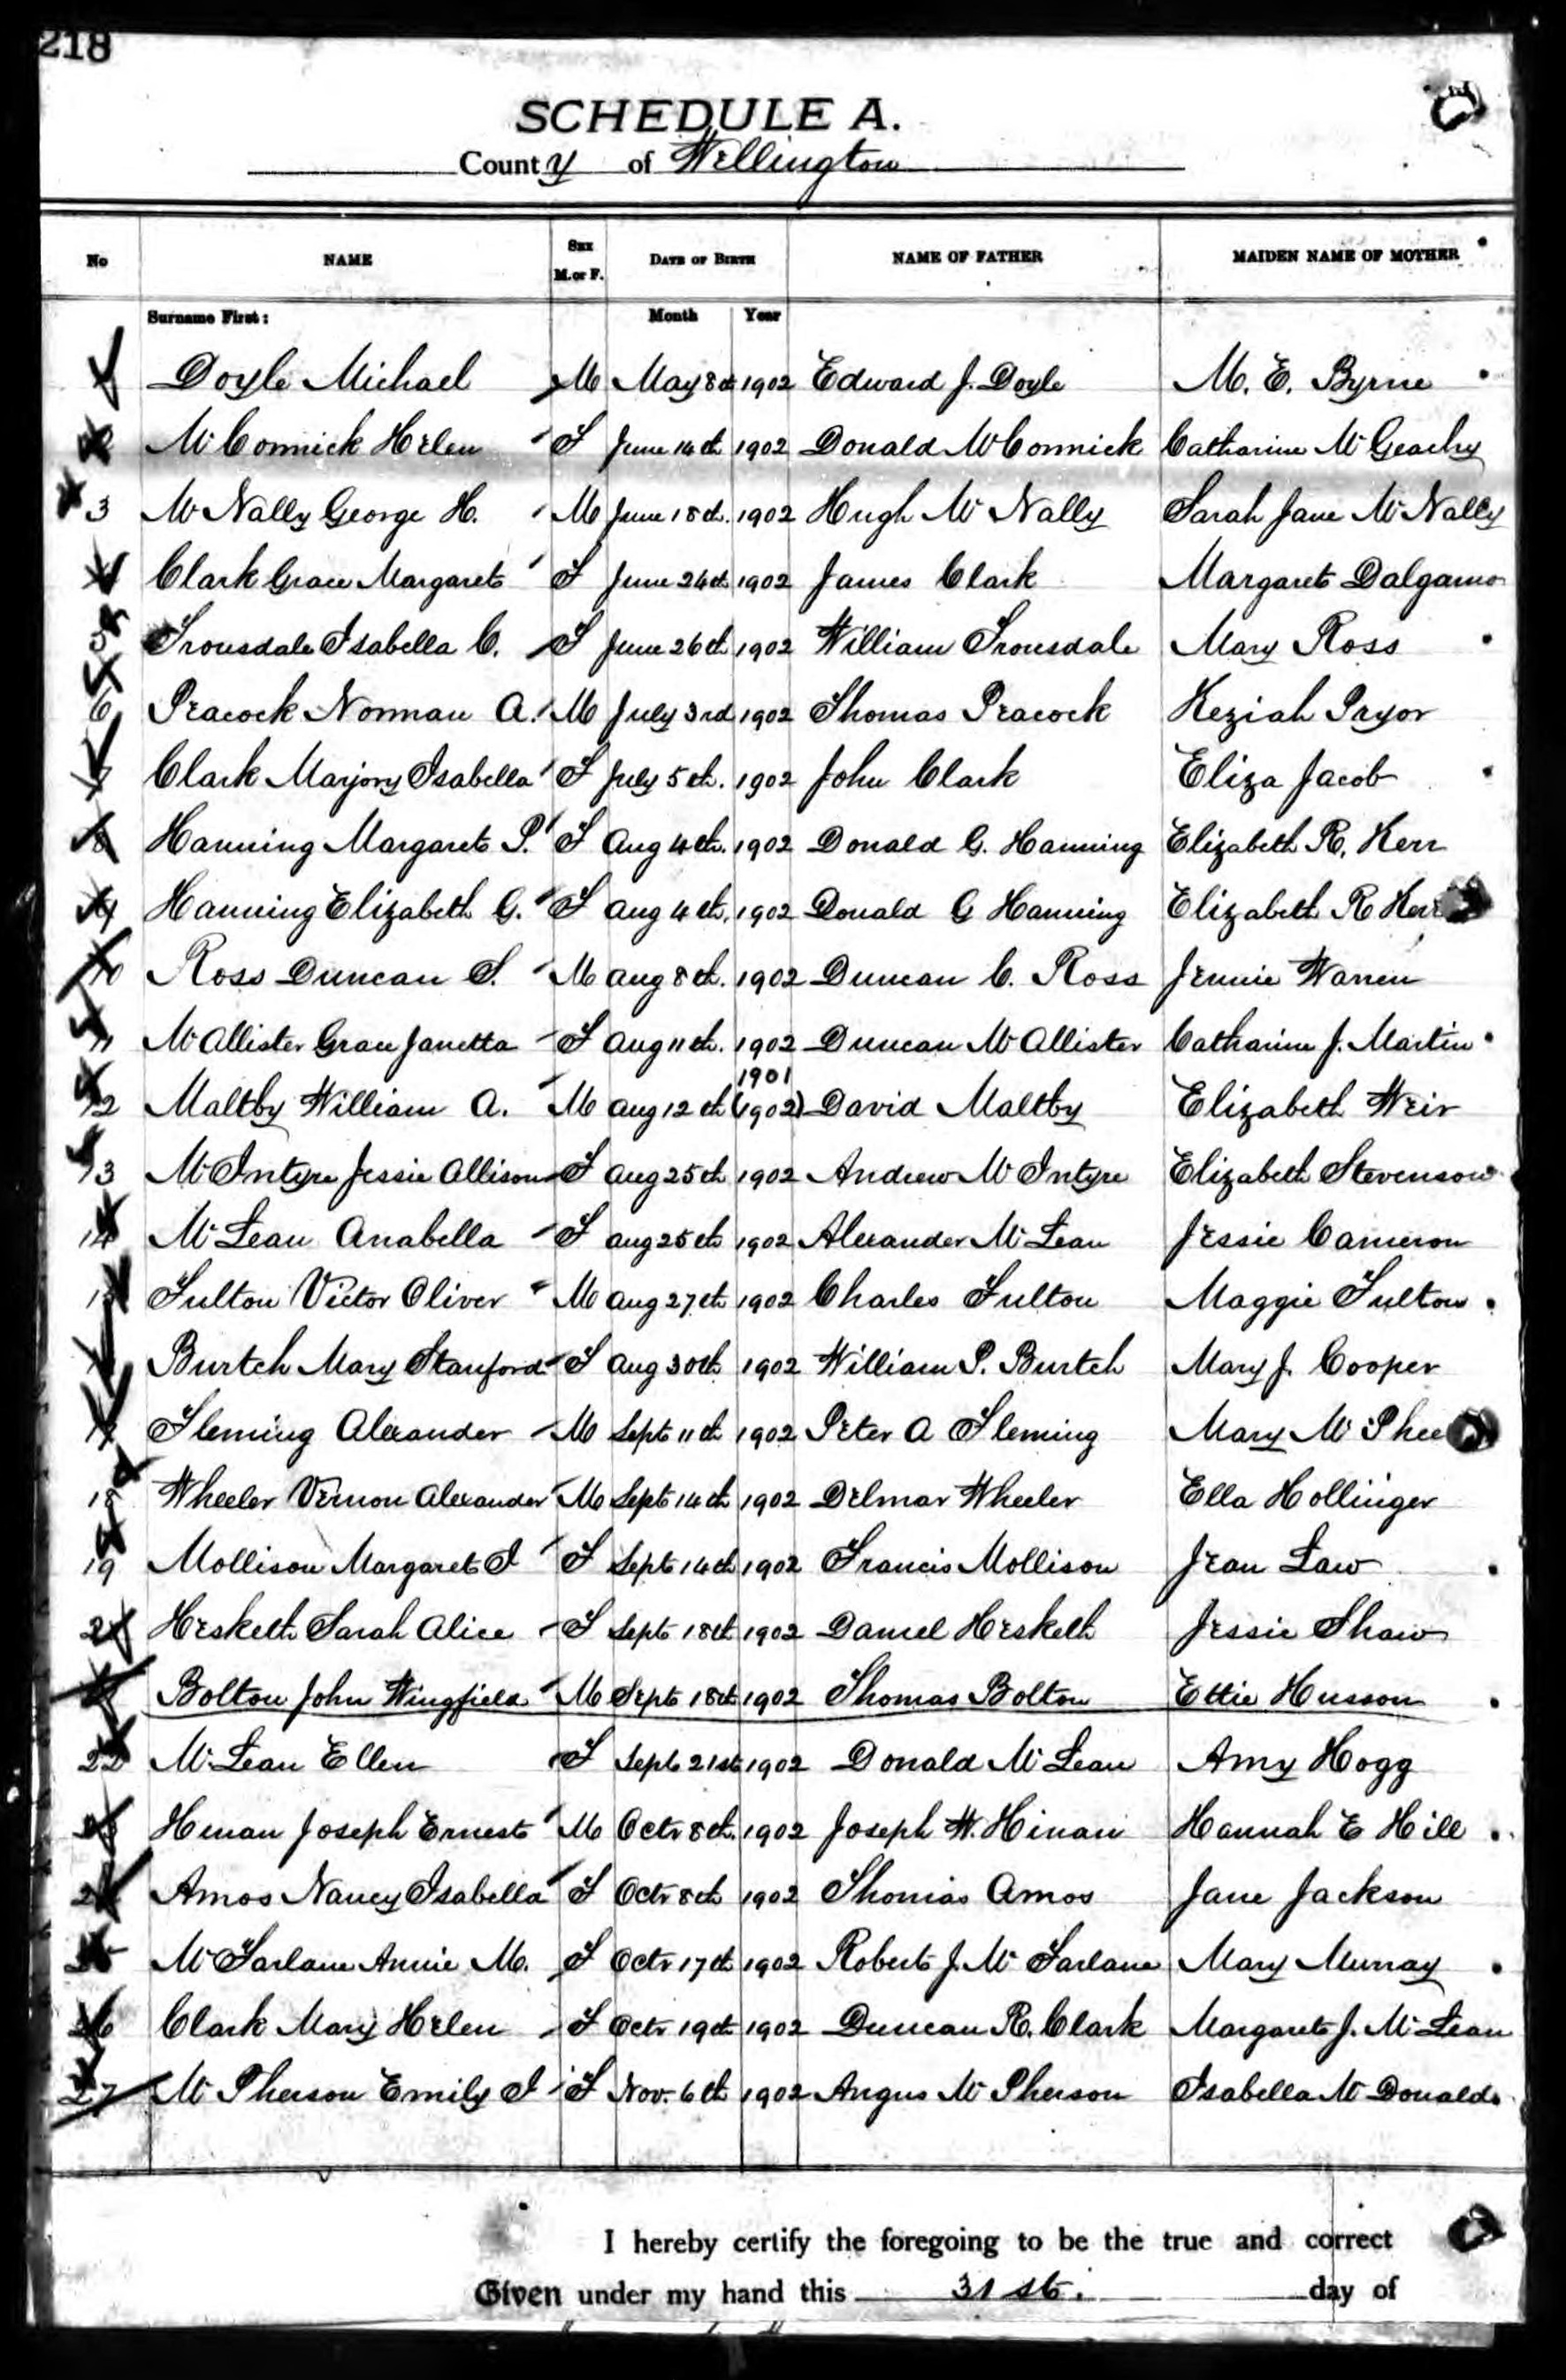 218
SCHEDULE A.
County of Wellington
No NAME Sex M. or F. DATE OF BIRTH NAME OF FATHER MAIDEN NAME OF MOTHER
Surname First: Month Year
Doyle Michael M May 8th 1902 Edward J. Doyle M. E. Byrne
McConnick Helen F June 14th 1902 Donald McConnick Catharine McGeachy
3 McNally George H. M June 18th 1902 Hugh McNally Sarah Jane McNally
4 Clark Grace Margaret F June 24th 1902 James Clark Margaret Dalgarno
5 Trousdale Isabella C. F June 26th 1902 William Trousdale Mary Ross
6 Peacock Norman A. M July 3rd 1902 Thomas Peacock Keziah Pryor
7 Clark Marjory Isabella F July 5th 1902 John Clark Eliza Jacob
8 Hanning Margaret P. F Aug 4th 1902 Donald G. Hanning Elizabeth R. Kerr
9 Hanning Elizabeth G. F Aug 4th 1902 Donald G Hanning Elizabeth R Kerr
10 Ross Duncan S. M Aug 8th 1902 Duncan C. Ross Jennie Warren
11 McAllister Grace Janetta F Aug 11th 1902 Duncan McAllister Catharine J. Martin
1901
12 Maltby William A. M Aug 12th (1902) David Maltby Elizabeth Weir
13 McIntyre Jessie Allison F Aug 25th 1902 Andrew McIntyre Elizabeth Stevenson
14 McLean Anabella F Aug 25th 1902 Alexander McLean Jessie Cameron
15 Fulton Victor Oliver M Aug 27th 1902 Charles Fulton Maggie Fulton
Burtch Mary Stanford F Aug 30th 1902 William P. Burtch Mary J. Cooper
17 Fleming Alexander M Sept 11th 1902 Peter A Fleming Mary McPhee
18 Wheeler Vernon Alexander M Sept 14th 1902 Delmar Wheeler Ella Hollinger
19 Mollison Margaret I F Sept 14th 1902 Francis Mollison Jean Law
20 Hesketh Sarah Alice F Sept 18th 1902 Daniel Hesketh Jessie Shaw
21 Bolton John Wingfield M Sept 18th 1902 Thomas Bolton Ettie Husson
22 McLean Ellen F Sept 21st 1902 Donald McLean Amy Hogg
23 Hinan Joseph Ernest M Octr 8th 1902 Joseph W. Hinan Hannah E Hill
24 Amos Nancy Isabella F Octr 8th 1902 Thomas Amos Jane Jackson
25 McFarlane Annie M. F Octr 17th 1902 Robert J. McFarlane Mary Murray
26 Clark Mary Helen F Octr 19th 1902 Duncan R. Clark Margaret J. McLean
27 McPherson Emily I F Nov. 6th 1902 Angus McPherson Isabella McDonald
I hereby certify the foregoing to be the true and correct
Given under my hand this 31st. day of